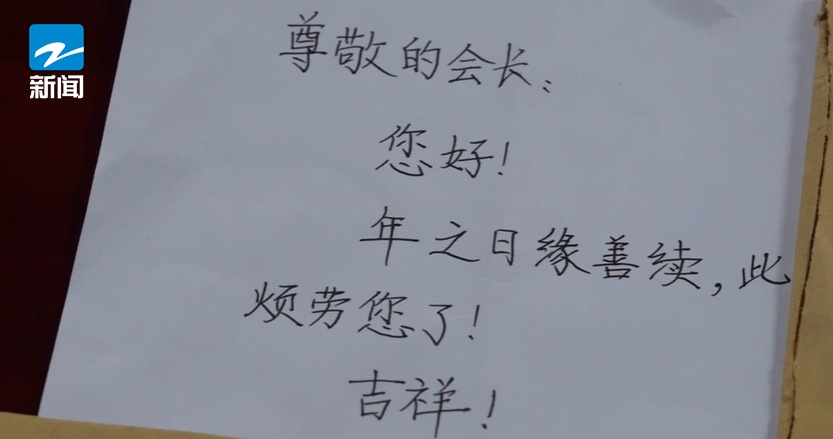 新闻
尊敬的会长：
您好！
年之日缘善续，此
烦劳您了！
吉祥！